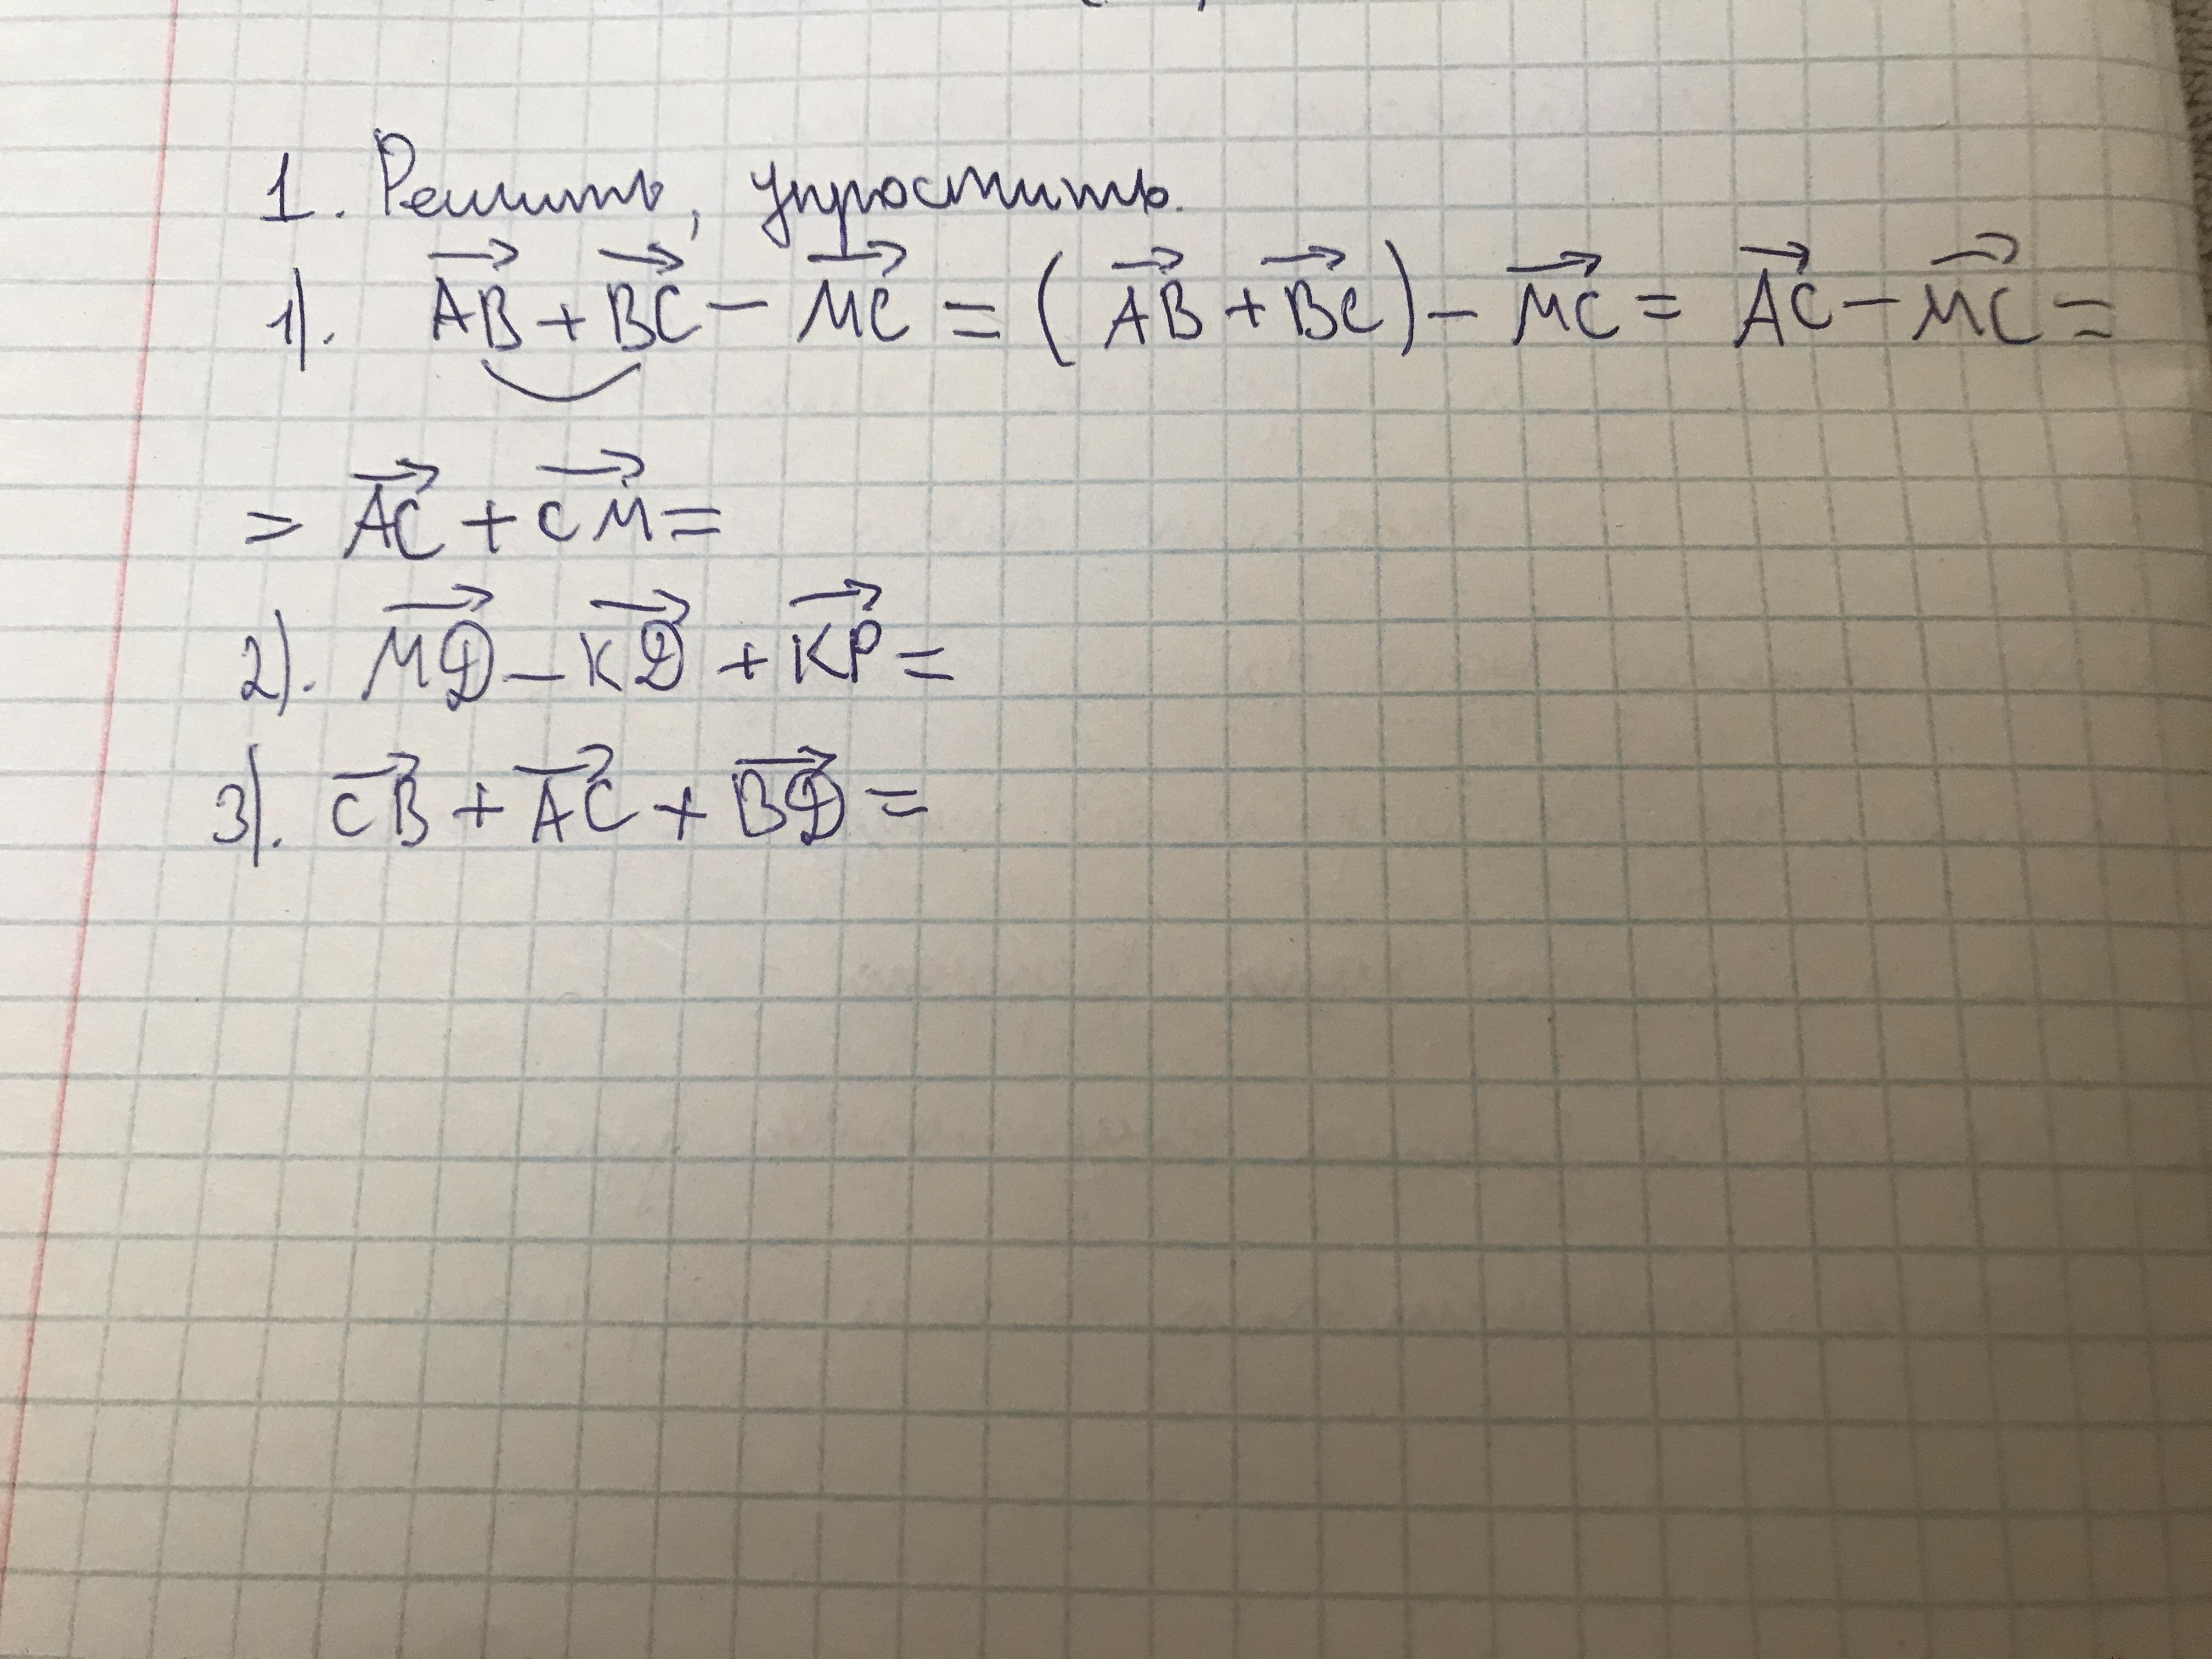 1. Решить, упростить.
1). $\overrightarrow{AB} + \overrightarrow{BC} - \overrightarrow{MC} = (\overrightarrow{AB} + \overrightarrow{BC}) - \overrightarrow{MC} = \overrightarrow{AC} - \overrightarrow{MC} =$
$= \overrightarrow{AC} + \overrightarrow{CM} =$
2). $\overrightarrow{MD} - \overrightarrow{KD} + \overrightarrow{KP} =$
3). $\overrightarrow{CB} + \overrightarrow{AC} + \overrightarrow{BD} =$